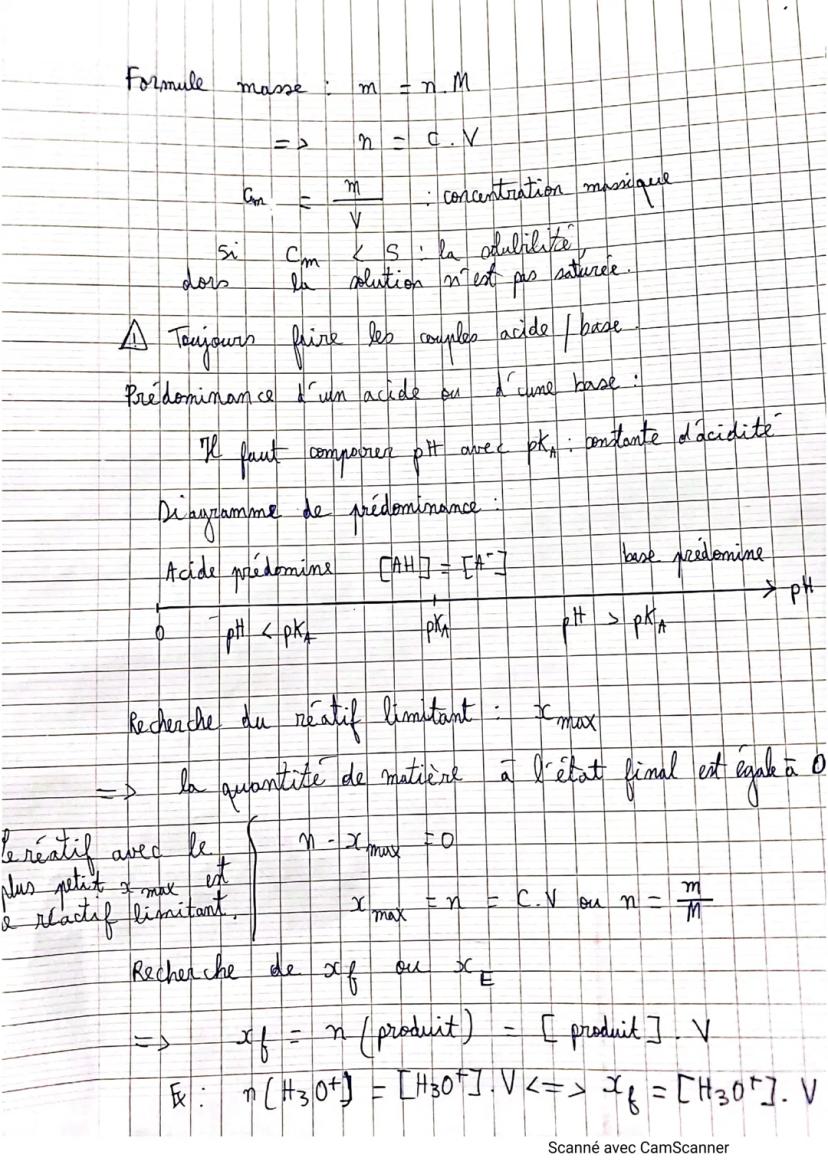 Formule masse : m = n.M
=> n = C.V
Cm = m/V : concentration massique
si Cm < S : la solubilité,
alors la solution n'est pas saturée.
⚠ Toujours faire les couples acide / base.
Prédominance d'un acide ou d'une base :
Il faut comparer pH avec pKA : constante d'acidité
Diagramme de prédominance :
Acide prédomine [AH] = [A-] base prédomine
pH
0 pH < pKA pKA pH > pKA
Recherche du réatif limitant : x max
=> la quantité de matière à l'état final est égale à 0
le réatif avec le
plus petit x max est
le réactif limitant.
n - x max = 0
x max = n = C.V ou n = m/M
Recherche de xf ou xE
=> xf = n (produit) = [produit].V
Ex : n(H3O+) = [H3O+].V <=> xf = [H3O+].V
Scanné avec CamScanner